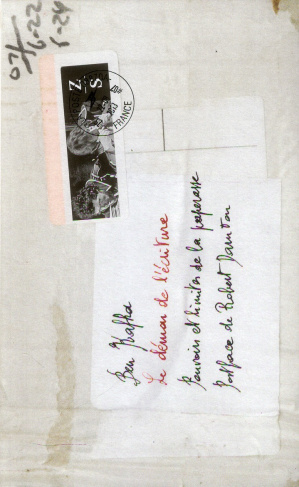 Ben Kafka
Le démon de l'écriture
Pouvoirs et limites de la paperasse
Postface de Robert Darnton
Z
S
FRANCE
07/
6-22
5-24